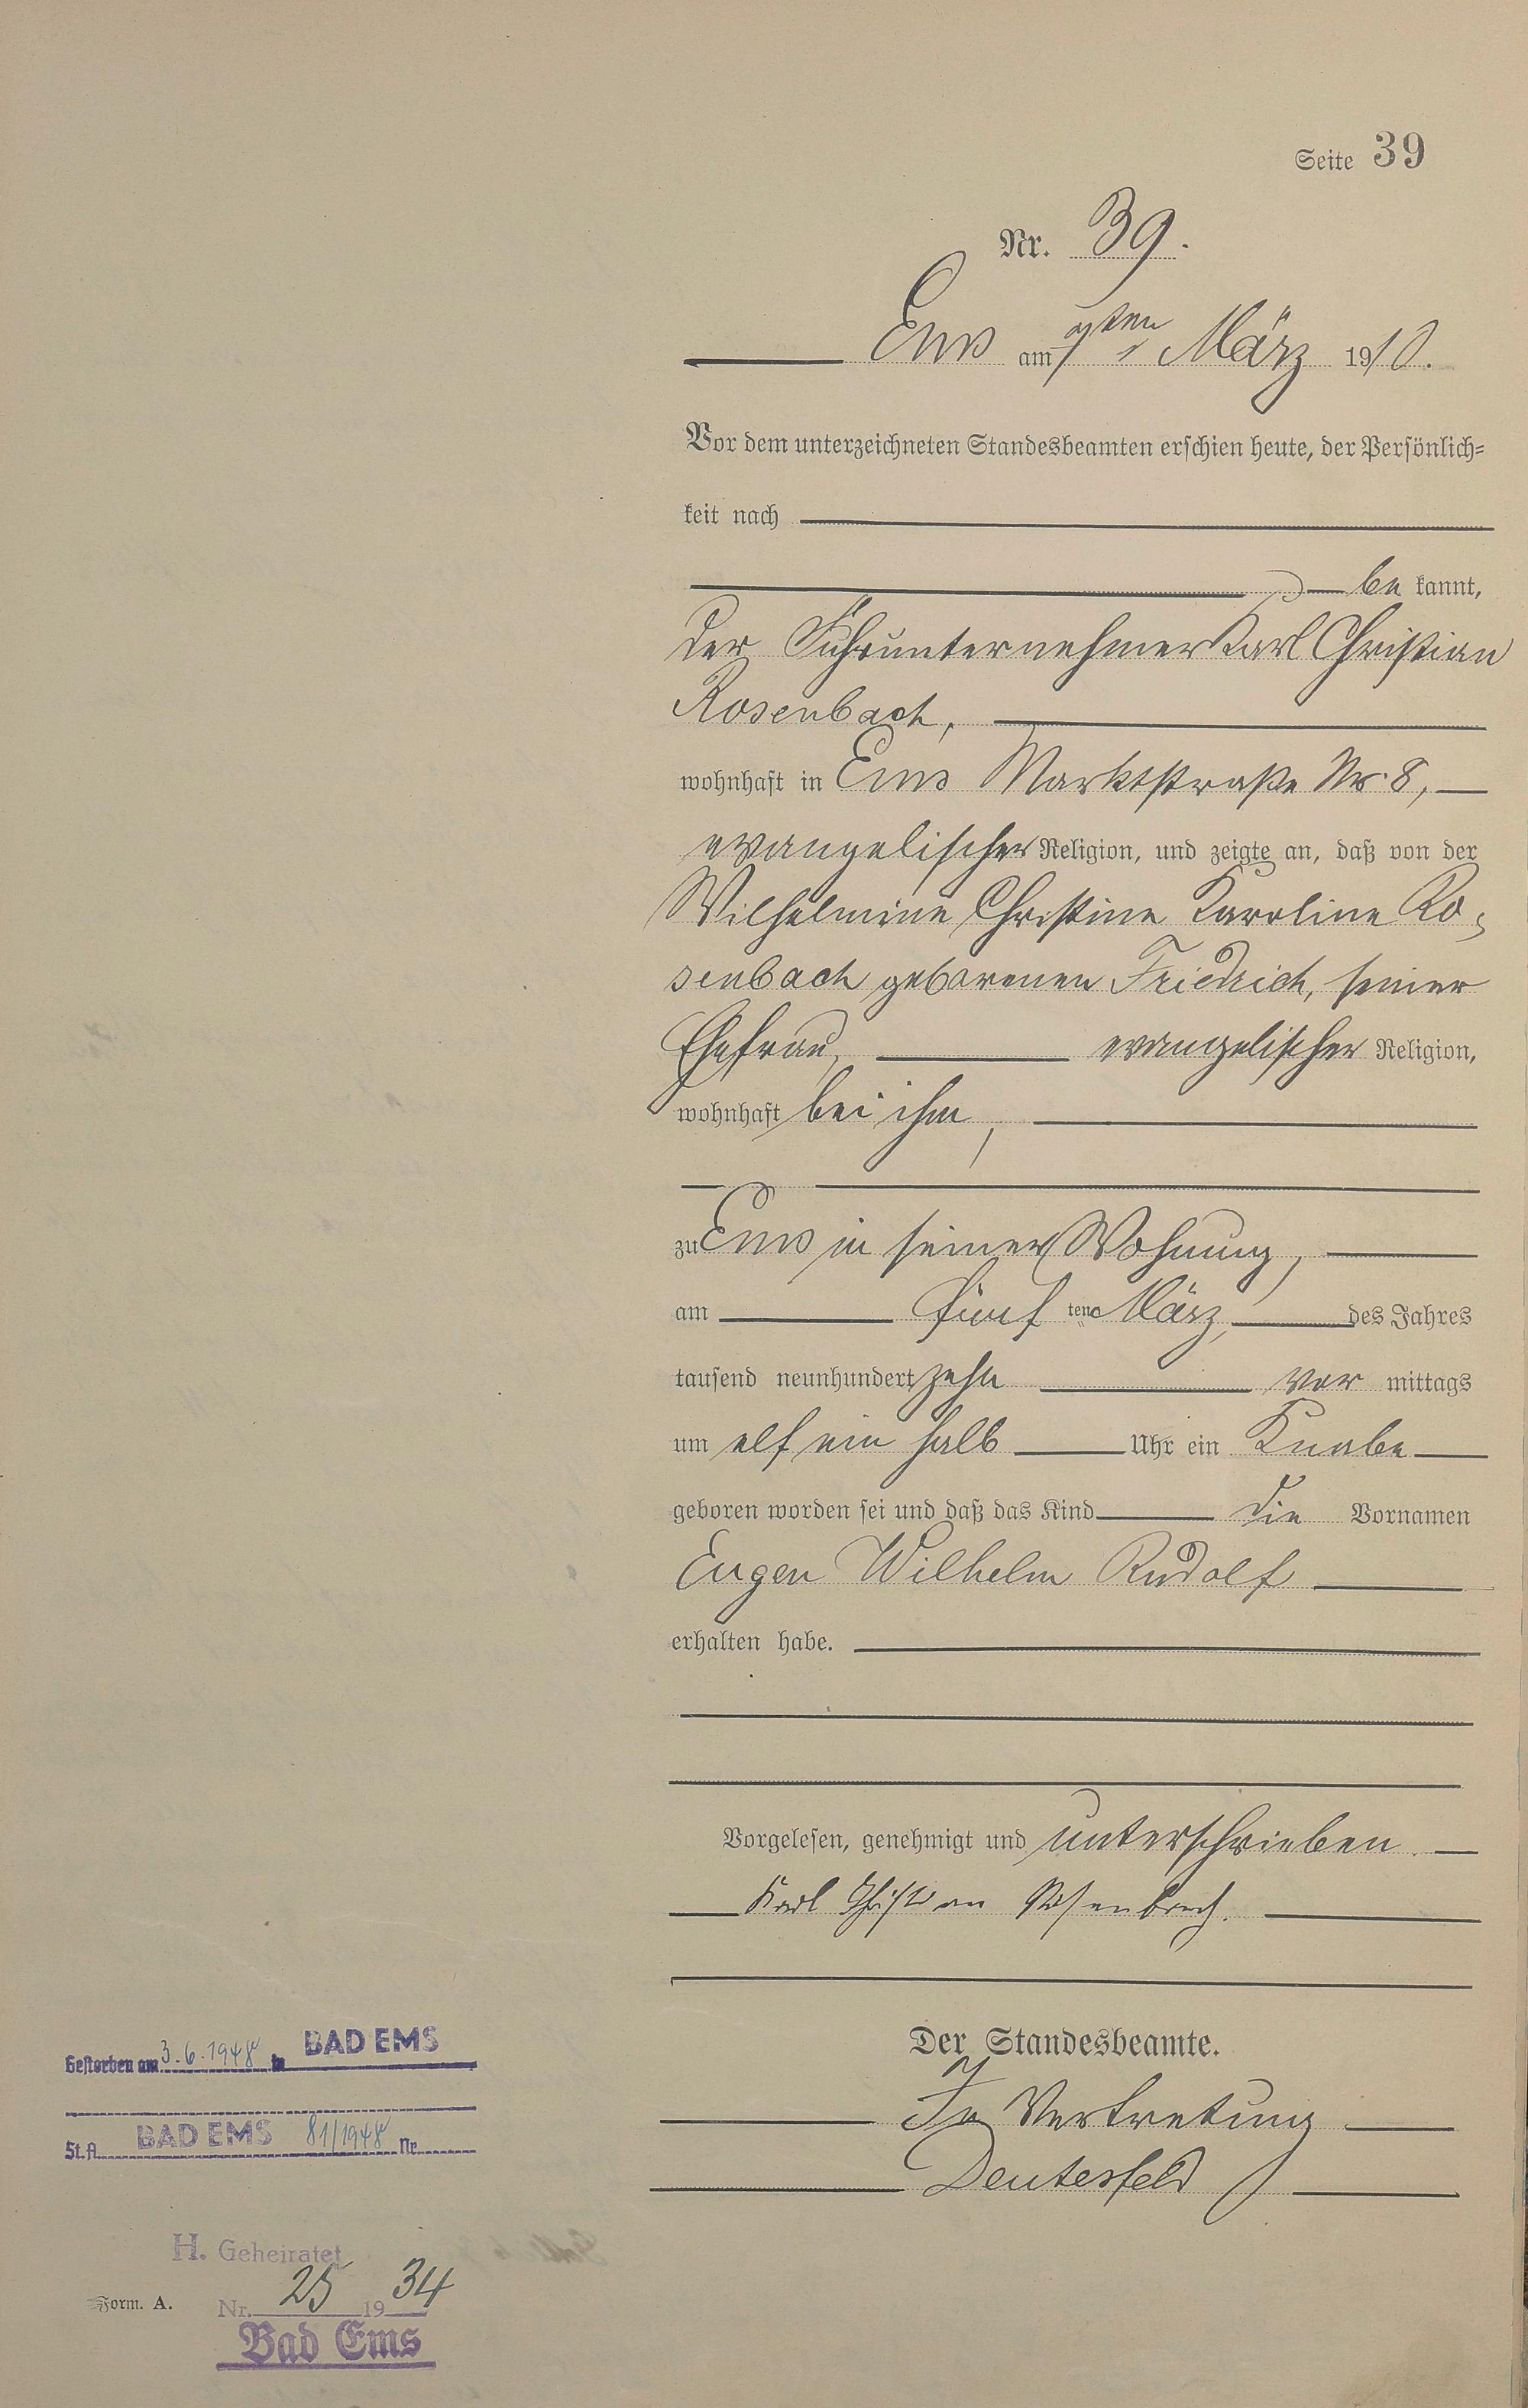 Seite 39
Nr. 39.
Ems am 7ten März 1910.
Vor dem unterzeichneten Standesbeamten erschien heute, der Persönlich-
keit nach
be kannt,
der Fuhrunternehmer Karl Christian
Rosenbach,
wohnhaft in Ems Marktstraße Nr. 8,
evangelischer Religion, und zeigte an, daß von der
Wilhelmine Christine Karoline Ro-
senbach geborenen Friedrich, seiner
Ehefrau, evangelischer Religion,
wohnhaft bei ihm,
zu Ems in seiner Wohnung,
am fünf ten März, des Jahres
tausend neunhundert zehn vor mittags
um elf ein halb Uhr ein Knabe
geboren worden sei und daß das Kind die Vornamen
Eugen Wilhelm Rudolf
erhalten habe.
Vorgelesen, genehmigt und unterschrieben.
Karl Christian Rosenbach.
Der Standesbeamte.
In Vertretung
Deutesfeld
Gestorben am 3.6.1948 in BAD EMS
St.A. BAD EMS 81/1948 Nr.
H. Geheiratet
Form. A. Nr. 25 1934
Bad Ems